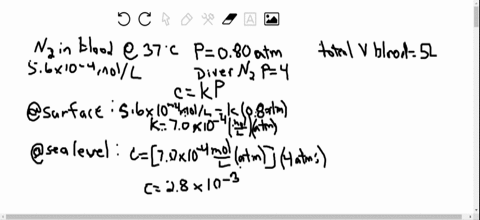 N₂ in blood @ 37°C P=0.80 atm total V blood=5L
5.6x10⁻⁴ mol/L Diver N₂ P=4
c=kP
@surface: 5.6x10⁻⁴ mol/L=k(0.8atm)
k=7.0x10⁻⁴ (mol/L)(atm)
@sealevel: C=[7.0x10⁻⁴ mol/L (atm)](4 atms)
C=2.8 x 10⁻³